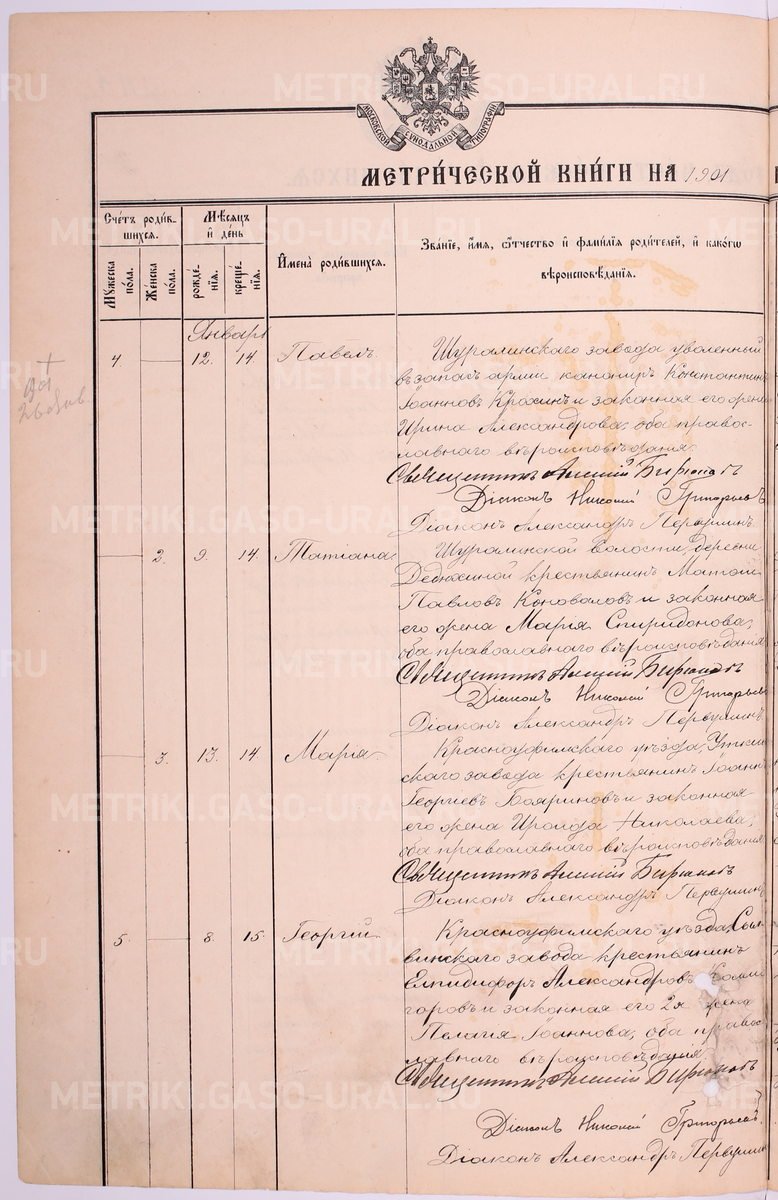 МОСКОВСКОЙ СѴНОДАЛЬНОЙ ТИПОГРАФІИ
МЕТРИ́ЧЕСКОЙ КНИ́ГИ НА 1901
Сче́тъ роди́в-
шихся.
Мѣ́сяцъ
и де́нь
Му́жеска
по́ла.
Же́нска
по́ла.
рожде́-
нїя.
креще́-
нїя.
Имена̀ роди́вшихся.
Зва́нїе, и́мя, ѻ҆́тчество и фами́лїя роди́телей, и како́гѡ
вѣроисповѣ́данїя.
Январь
4. 12. 14. Павелъ.
Шуралинскаго завода уволенный
въ запасъ арміи канониръ Константинъ
Іоанновъ и законная его жена
Ирина Александрова, оба правос-
лавнаго вѣроисповѣданія.
Священникъ Алексій Бирюковъ
Діаконъ Николай Григорьевъ
Діаконъ Александръ Первушинъ
2. 9. 14. Татіана
Шуралинской волости, деревни
крестьянинъ
Павловъ Коноваловъ и законная
его жена Марія Спиридонова,
оба православнаго вѣроисповѣданія
Священникъ Алексій Бирюковъ
Діаконъ Николай Григорьевъ
Діаконъ Александръ Первушинъ
3. 13. 14. Марія
Красноуфимскаго уѣзда, Уткин
скаго завода крестьянинъ Іоаннъ
Георгіевъ Бояриновъ и законная
его жена Ироида Николаева,
оба православнаго вѣроисповѣданія
Священникъ Алексій Бирюковъ
Діаконъ Александръ Первушинъ
5. 8. 15. Георгій
Красноуфимскаго уѣзда, Сыл
винскаго завода крестьянинъ
Елпидифоръ Александровъ
и законная его 2я жена
Пелагія Іоаннова, оба правос
лавнаго вѣроисповѣданія.
Священникъ Алексій Бирюковъ
Діаконъ Николай Григорьевъ
Діаконъ Александръ Первушинъ
METRIKI.GASO-URAL.RU